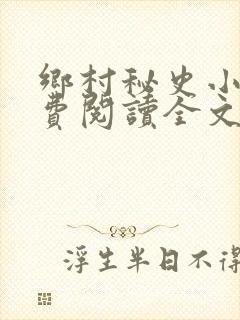 鄉村秘史小
費閱讀全文
浮生半日不得